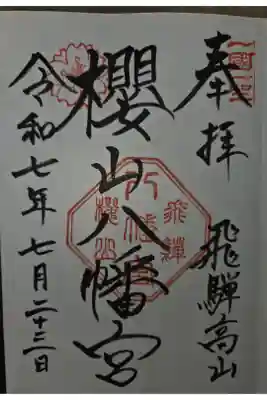 奉拝
飛騨高山
櫻山八幡宮
飛騨
八幡宮
櫻山
令和七年七月二十三日